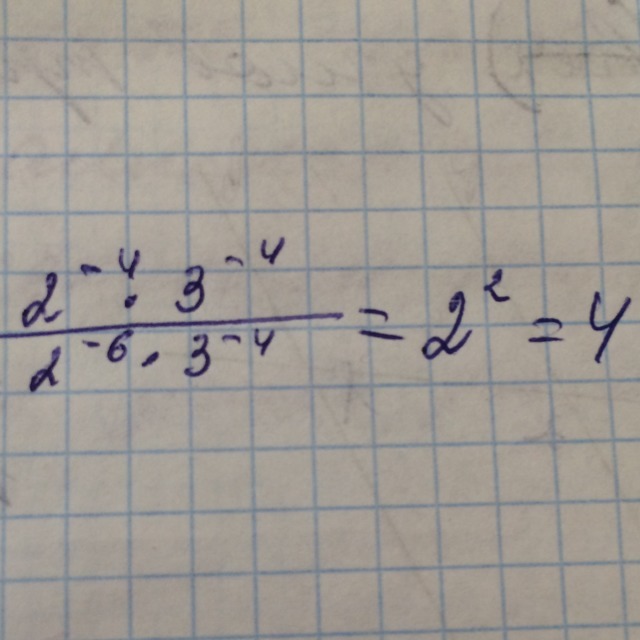 2⁻⁴ · 3⁻⁴
2⁻⁶ · 3⁻⁴ = 2² = 4